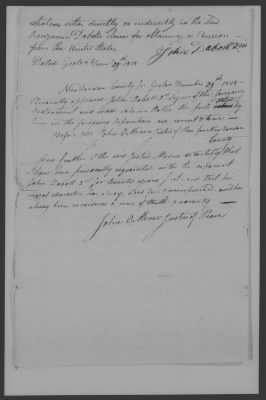 either directly or indirectly in the said
Benjamin Dabolls claim for obtaining a Pension
from the United States
John Daboll 2nd
Dated Groton Decr 29th 1818
New London County ss. Groton December 29th 1818
Personally appeared John Daboll 2nd signer of the foregoing
and made Solemn Oath that the facts stated by
him in the foregoing are correct & true
Before me John O. Miner Justice of Peace for New London
County
And further I the said Justice Miner do certify that
I have been personally acquainted with the deponent
John Daboll 2nd for years past and that his
moral character has always been unimpeached and has
always been considered a man of truth & veracity
John O. Miner Justice of Peace